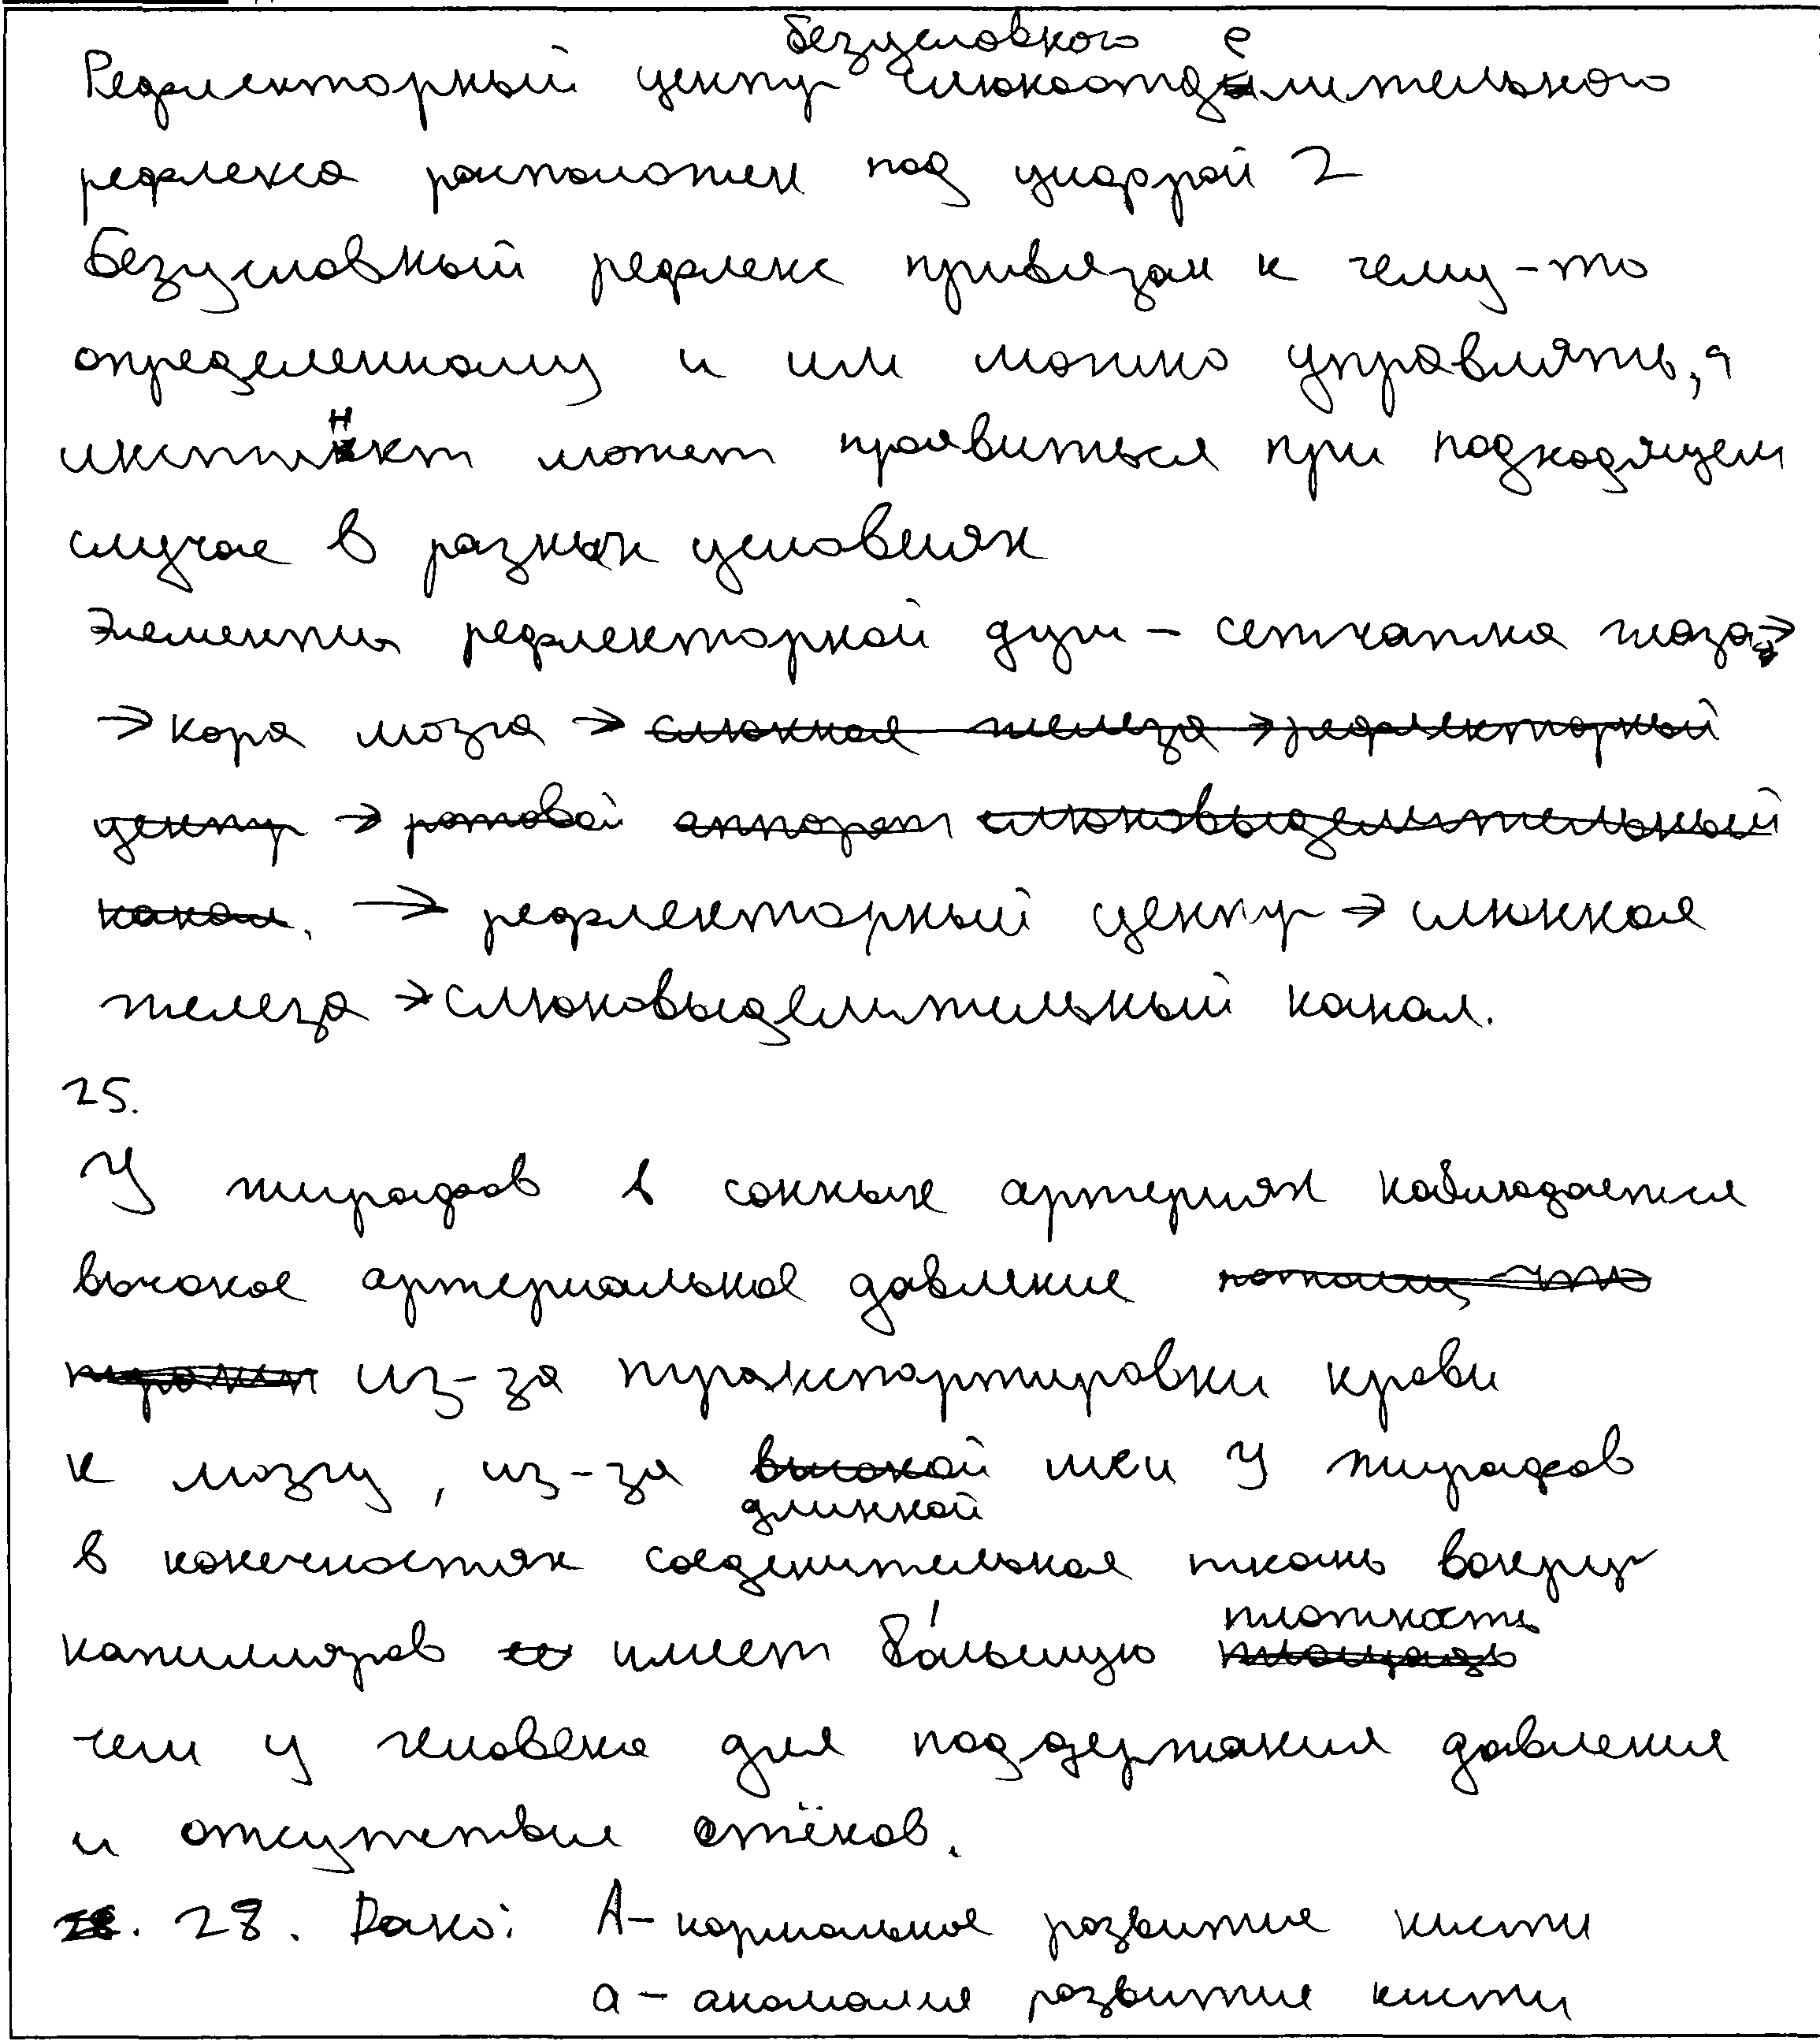 безусловного е
Рефлекторный центр слюноотделительного
рефлекса расположен под цифрой 2
Безусловный рефлекс привязан к чему-то
определенному и им можно управлять, а
инстинкт может проявиться при подходящем
случае в разных условиях
Элементы рефлекторной дуги – сетчатка глаза →
→ кора мозга → слюнная железа → рефлекторный
центр → ротовой аппарат слюновыделительный
канал. → рефлекторный центр → слюнная
железа → слюновыделительный канал.
25.
У жирафов в сонных артериях наблюдается
высокое артериальное давление потому что
из-за транспортировки крови
к мозгу, из-за высокой шеи У жирафов
длинной
в конечностях соеденительная ткань вокруг
плотность
капилляров имеет бо́льшую площадь
чем у человека для поддержания давления
и отсутствие отёков.
28. Дано: А – нормальное развитие кисти
а – аномалия развитие кисти